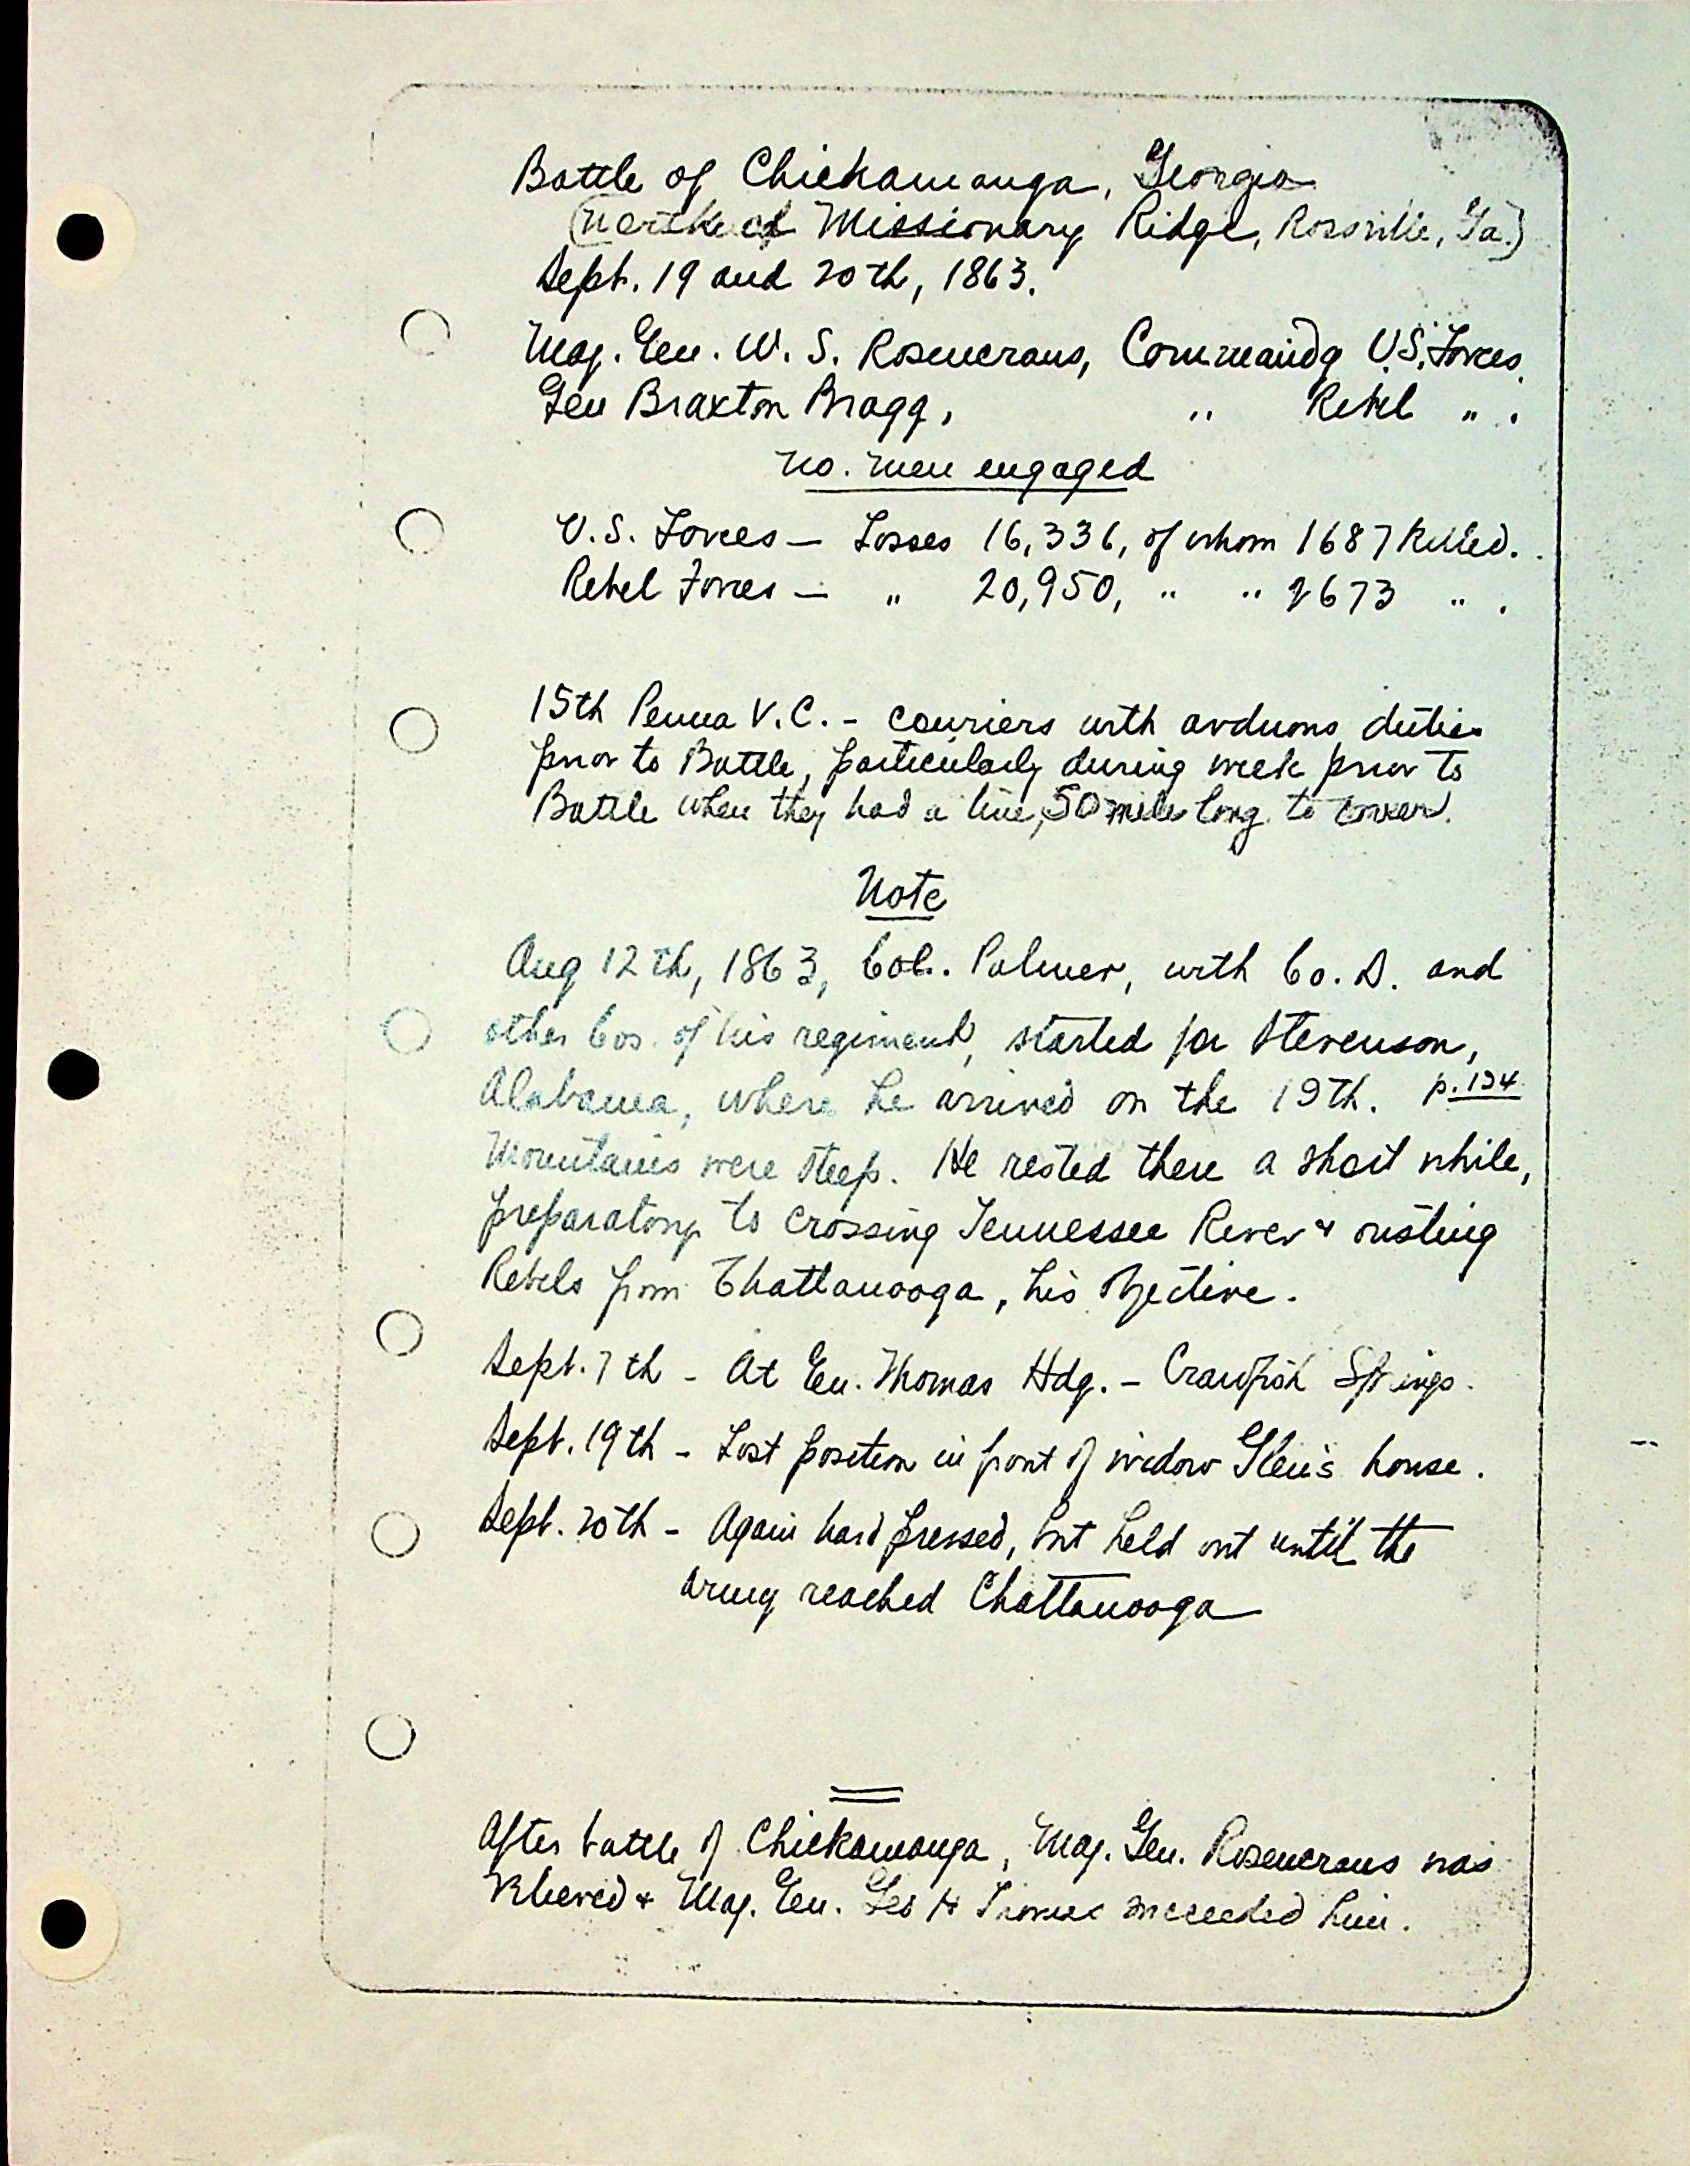 Battle of Chickamauga, Georgia
(North end Missionary Ridge, Rossville, Ga.)
Sept. 19 and 20th, 1863.
Maj. Gen. W. S. Rosencrans, Commandg U.S. Forces.
Gen Braxton Bragg, " Rebel " .
No. men engaged
U.S. Forces — Losses 16,336, of whom 1687 killed.
Rebel Forces — " 20,950, " " 2673 " .
15th Penna V.C. - couriers with arduous duties
prior to Battle, particularly during week prior to
Battle when they had a line, 50 miles long to cover.
Note
Aug 12th, 1863, Col. Palmer, with Co. D. and
other Cos. of his regiment, started for Stevenson,
Alabama, where he arrived on the 19th. p. 194
Mountains were steep. He rested there a short while,
preparatory to crossing Tennessee River & ousting
Rebels from Chattanooga, his objective.
Sept. 7th - At Gen. Thomas Hdq. - Crawfish Springs.
Sept. 19th - Lost position in front of widow Glen's house.
Sept. 20th - Again hard pressed, but held out until the
army reached Chattanooga
After battle of Chickamauga, Maj. Gen. Rosencrans was
relieved & Maj. Gen. Geo H Thomas succeeded him.